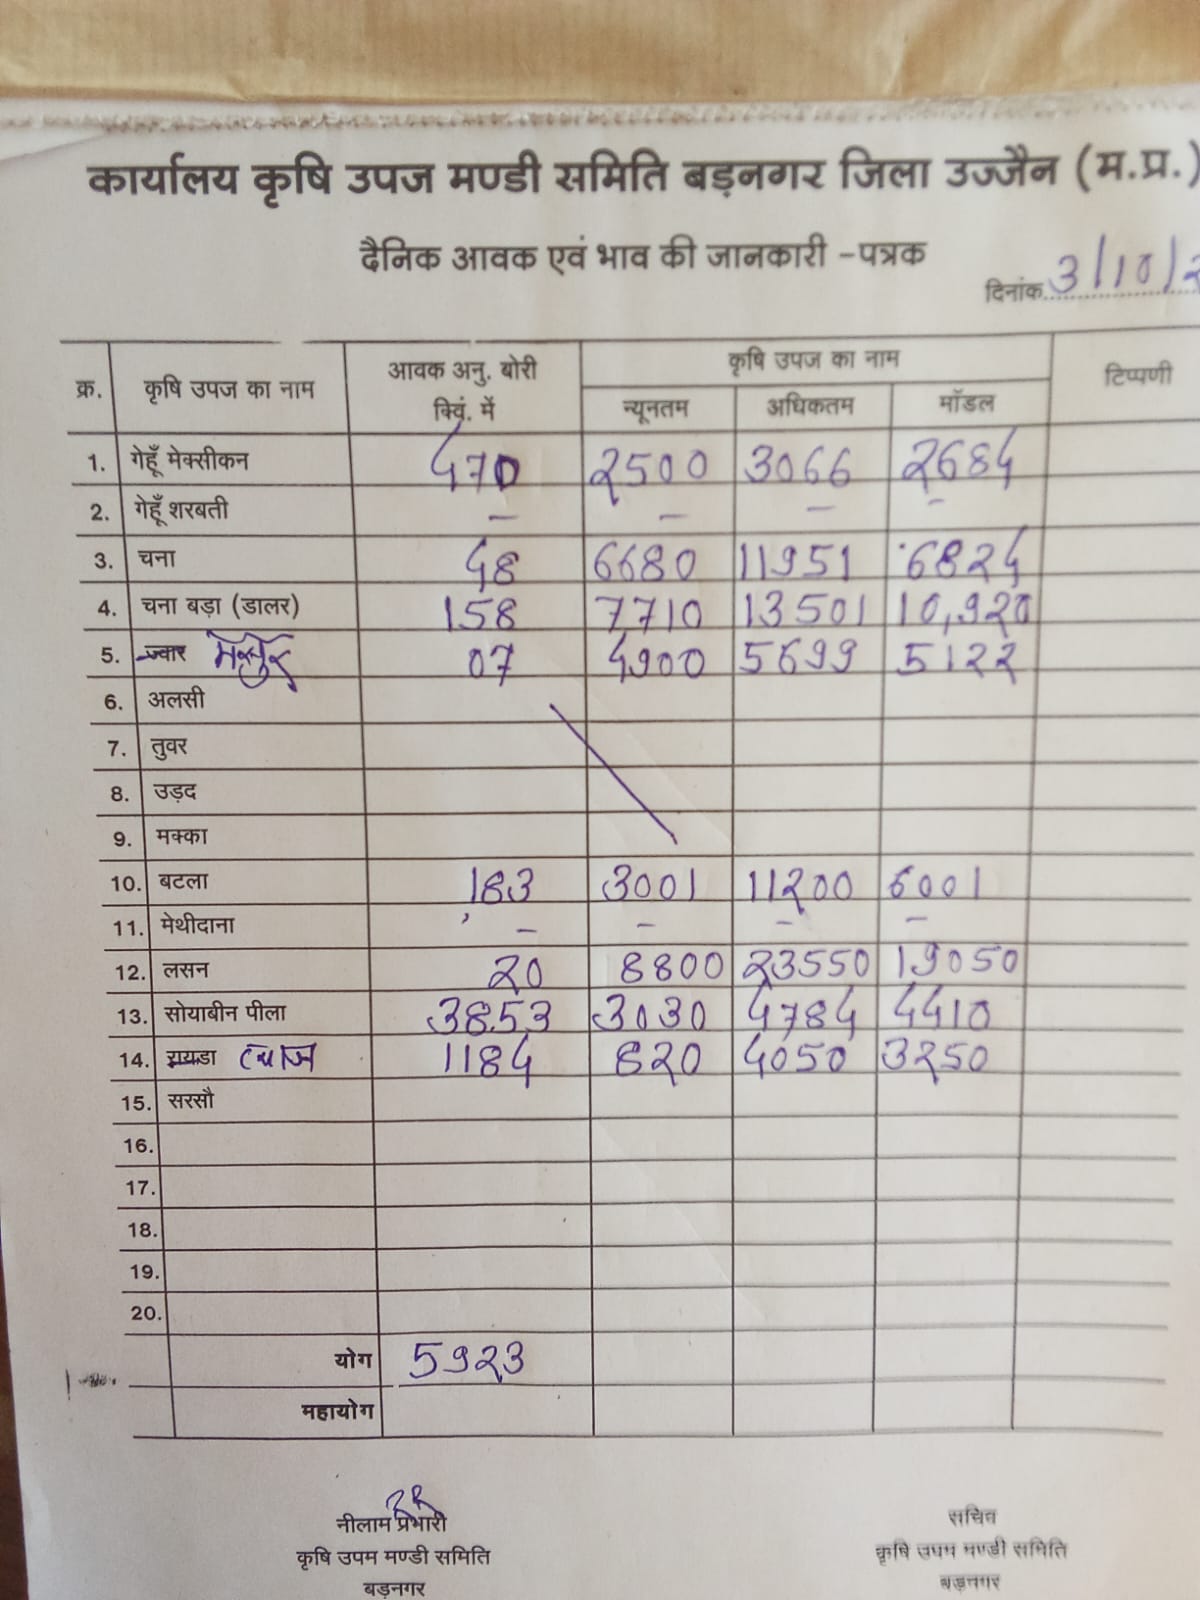 कार्यालय कृषि उपज मण्डी समिति बड़नगर जिला उज्जैन (म.प्र.)
दैनिक आवक एवं भाव की जानकारी -पत्रक
दिनांक 3/10/2
क्र. कृषि उपज का नाम आवक अनु. बोरी क्विं. में कृषि उपज का नाम टिप्पणी
न्यूनतम अधिकतम मॉडल
1. गेहूँ मेक्सीकन 470 2500 3066 2684
2. गेहूँ शरबती – – – –
3. चना 48 6680 11951 6824
4. चना बड़ा (डालर) 158 7710 13501 10,920
5. ज्वार मसुर 07 4900 5699 5122
6. अलसी
7. तुवर
8. उड़द
9. मक्का
10. बटला 183 3001 11200 6001
11. मेथीदाना – – – –
12. लसन 20 8800 23550 19050
13. सोयाबीन पीला 3853 3030 4784 4410
14. रायडा प्याज 1184 820 4050 3250
15. सरसौ
16.
17.
18.
19.
20.
योग 5923
महायोग
नीलाम प्रभारी सचिव
कृषि उपम मण्डी समिति कृषि उपम मण्डी समिति
बड़नगर बड़नगर